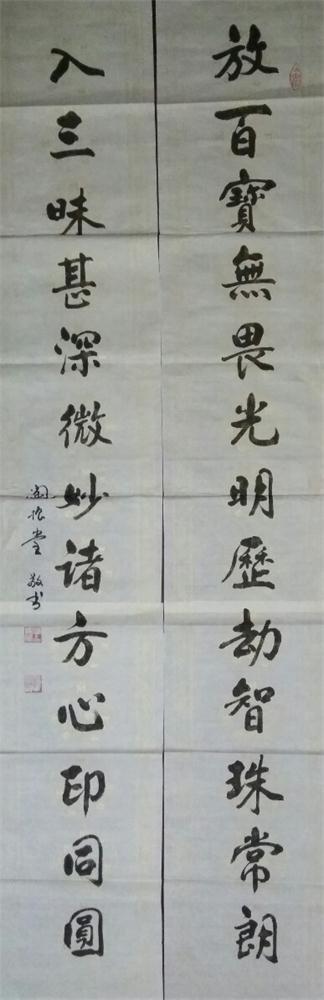 放百寶無畏光明歷劫智珠常朗
入三昧甚深微妙諸方心印同圓
敬书